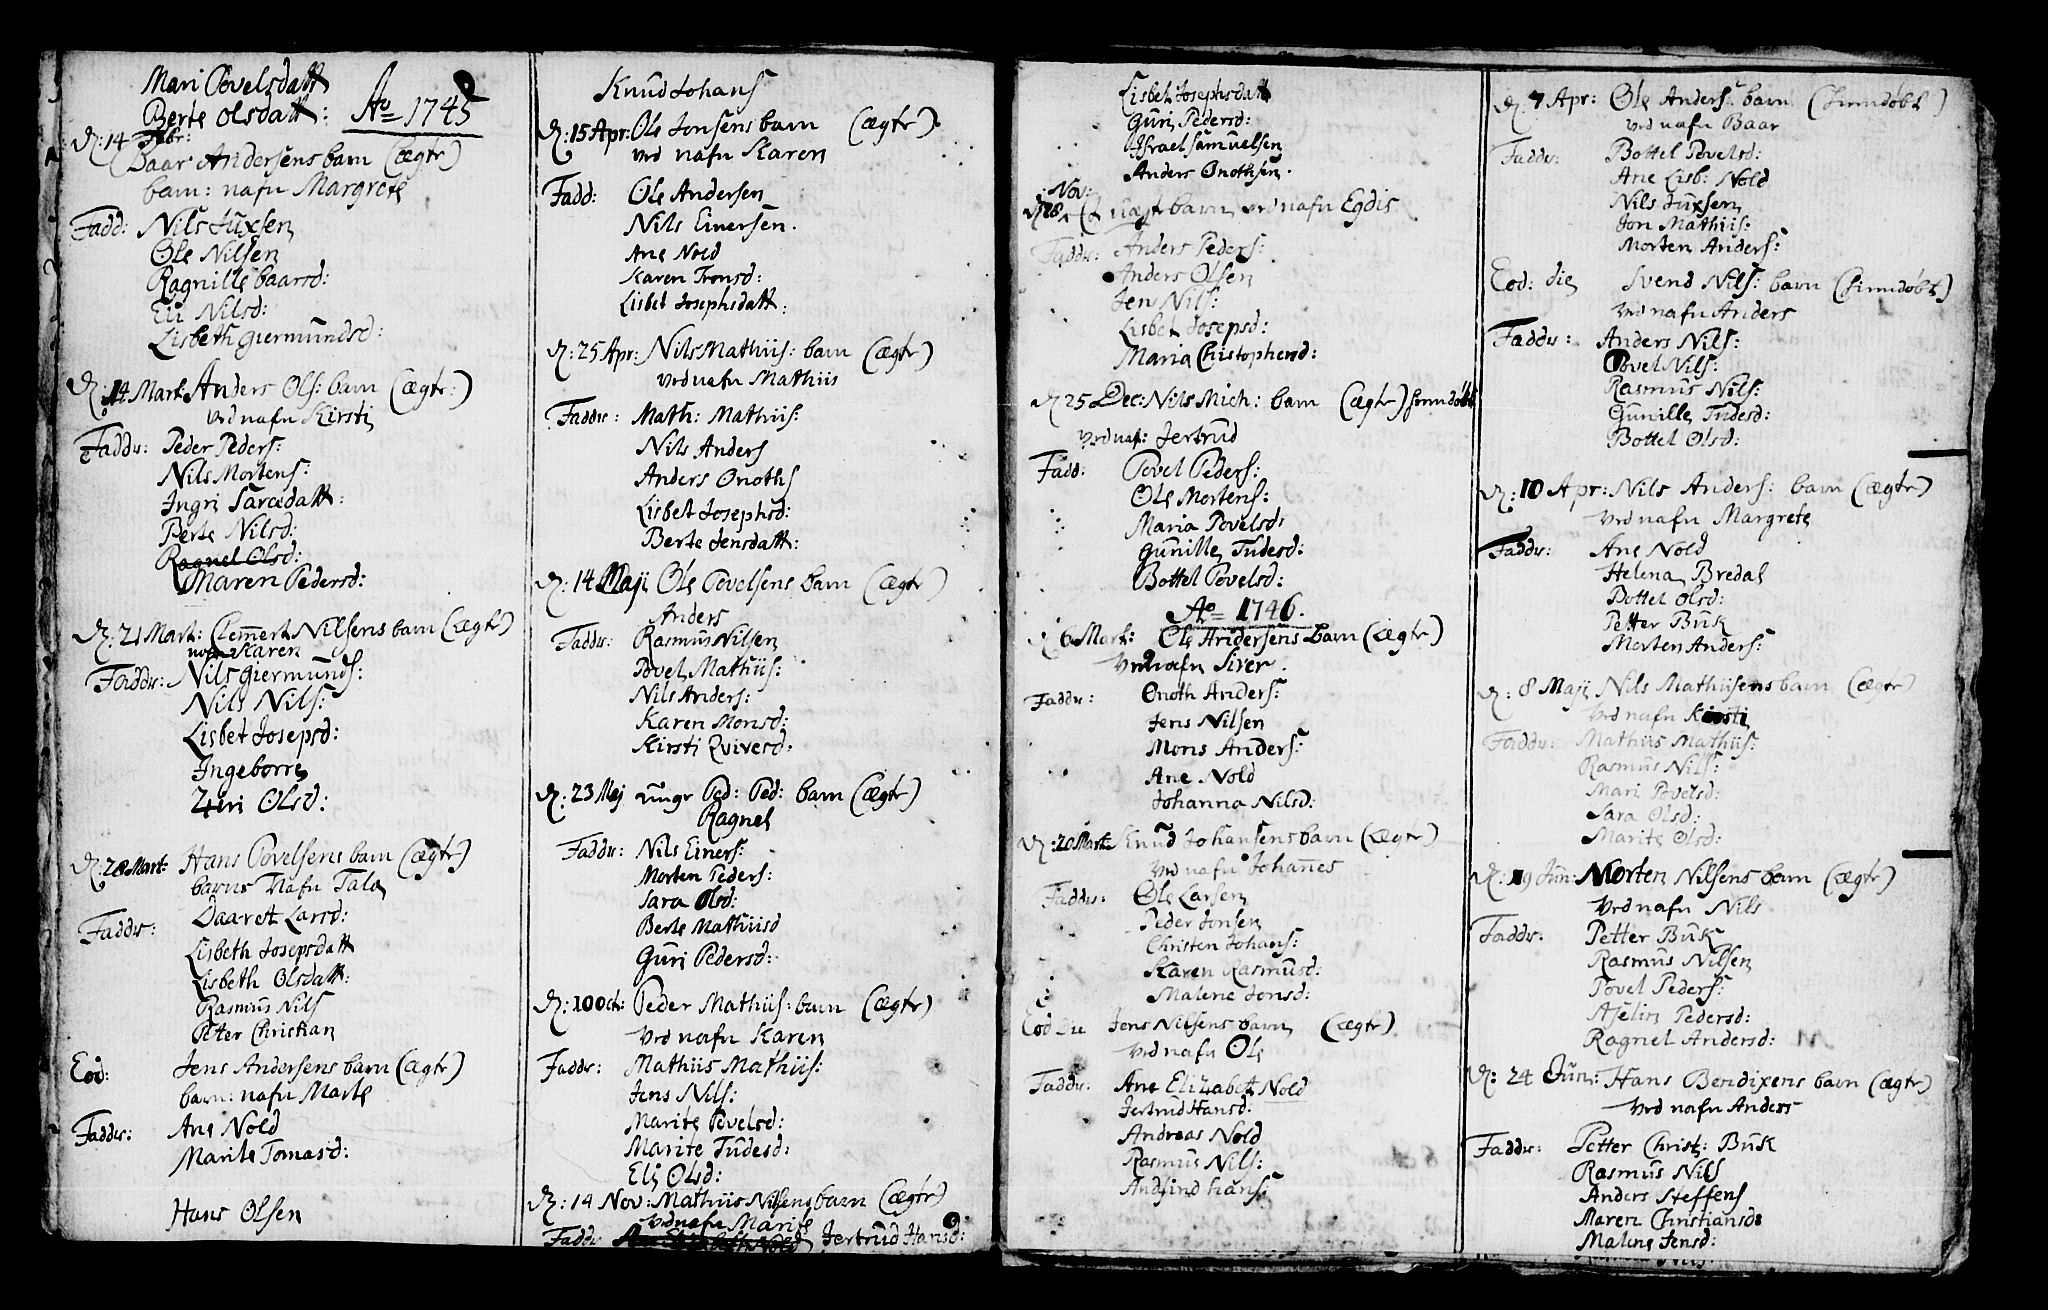 Mari Povelsdatt
Berte Olsdatt: Ao 1745
D: 14 Febr:
Baar Andersens barn (ægtr)
barn: nafn Margrete
Fadd: Nils Juxsen
Ole Nilsen
Ragnille baarsd:
Eli Nilsd:
Lisbeth giermundsd:
D: 14 Mart: Anders Ols: barn (ægtr:)
vrd nafn Kirsti
Faddr: Peder Peders:
Nils Mortens:
Ingri Saradatt:
Berte Nilsd:
Ragnel Olsd:
Maren Pedersd:
D: 21 Mart: Clemert Nilsens barn (ægtr)
nafn Karen
Faddr: Nils giermunds:
Nils Nils:
Lisbet Josepsd:
Ingeborre
Olsd:
D: 28 Mart: Hans Povelsens barn (ægtr)
barns Nafn Tale
Faddr: Daaret Larsd:
Lisbeth Josepsdatt
Lisbeth Olsdatt:
Rasmus Nils
Peter Christian
Eod: Jens Andersens barn (ægtr)
barn: nafn Marte
Faddr: Ane Nold
Marite Tomasd:
Hans Olsen
Knud Johans
D: 15 Apr: Ole Jonsens barn (ægtr).
vrd nafn Karen
Fadd: Ole Andersen
Nils Einersen.
Ane Nold
Karen Tronsd:
Lisbet Josephsdatt:
D: 25 Apr: Nils Mathiis: barn (ægtr)
vrd nafn Mathiis
Faddr: Math: Mathiis:
Nils Anders
Anders Onoths
Lisbet Josephsd:
Berte Jensdatt:
D: 14 Maji Ole Povelsens barn (ægtr)
Anders
Faddr: Rasmus Nilsen
Povel Mathiis:
Nils Anders:
Karen Monsd:
Kirsti Qvivesd:
D: 23 Mej ungr Ped: Ped: barn (ægtr)
Ragnel
Faddr: Nils Einers:
Morten Peders:
Sara Olsd:
Berte Mathiisd
Guri Pedersd:
D: 10 Oct: Peder Mathiis: barn (ægtr)
vrd nafn Karen
Faddr: Mathiis Mathiis:
Jens Nils:
Marite Povelsd:
Marite Tudesd:
Eli Olsd:
D: 14 Nov: Mathiis Nilsens barn (ægtr)
vrd nafn Marite
Faddr Jertrud Hansd:
Lisbet Josephsdatt
Guri Pedersd:
Israel Samuelsen
Anders Onothsen.
Nov:
D 28 barn vrd nafn Egdis
Faddr: Anders Peders:
Anders Olsen
Jen Nils:
Lisbet Josepsd:
Maria Christophersd:
D 25 Dec: Nils Mich: barn (ægtr) hiemdøbt
vrd naf: Jertrud
Fadd: Povel Peders:
Ole Mortens:
Maria Povelsd:
Gunille Tudesd:
Bottel Povelsd:
Ao 1746.
D: 6 Mart: Ole Andersens barn (ægtr)
vrd nafn Siver.
Faddr: Onoth Anders:
Jens Nilsen
Mons Anders:
Ane Nold
Johanna Nilsd:
D: 20 Mart: Knud Johansens barn (ægtr)
vrd nafn Johannes
Faddr: Ole Larsen
Peder Jonsen
Christen Johans:
Karen Rasmusd:
Malene Jonsd:
Eod Die Jens Nilsens barn (ægtr)
vrd nafn Ole
Faddr: Ane Elizabett Nold
Jertrud Hansd:
Andreas Nold
Rasmus Nils:
Andfind hans:
D. 7 Apr: Ole Anders: barn (hiemdøbt)
vrd nafn Baar
Faddr: Bottel Povelsd:
Ane Lisb: Nold
Nils Juxsen
Jon Mathiis:
Morten Anders:
Eod: die Svend Nils: barn (hiemdøbt)
vrd nafn Anders
Faddr: Anders Nils:
Povel Nils:
Rasmus Nils:
Gunille Tudesd:
Bottel Olsd:
D: 10 Apr: Nils Anders: barn (ægtr)
vrd nafn Margrete
Faddr: Ane Nold
Helena Bredal
Bottel Olsd:
Petter Buk
Morten Anders:
D: 8 Maji Nils Mathiisens barn (ægtr)
vrd nafn Kirsti
Faddr: Mathiis Mathiis:
Rasmus Nils:
Mari Povelsd:
Sara Olsd:
Marite Olsd:
D: 19 Jun: Morten Nilsens barn (ægtr)
vrd nafn Nils
Faddr: Petter Buk
Rasmus Nilsen
Povel Peders:
Aselin Pedersd:
Ragnel Andersd:
D: 24 Jun: Hans Bendixens barn (ægtr)
vrd nafn Anders
Faddr: Petter Christ: Buk
Rasmus Nils
Anders Steffens
Maren Christiansd:
Malene Jensd: